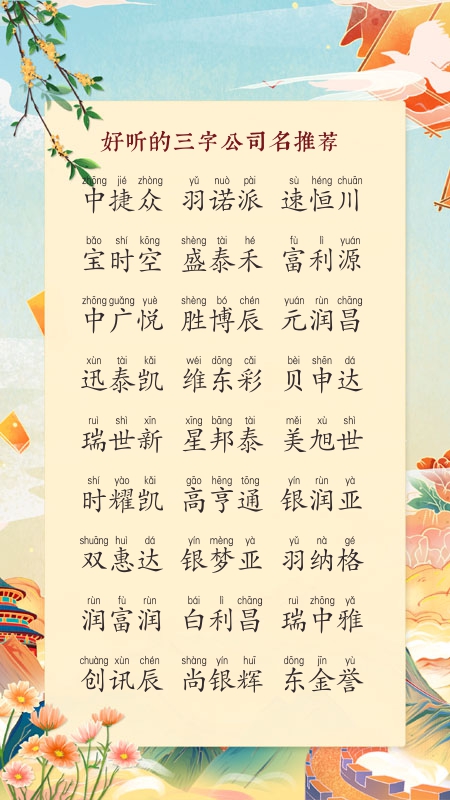 好听的三字公司名推荐
zhōng jié zhòng yǔ nuò pài sù héng chuān
中捷众 羽诺派 速恒川
bǎo shí kōng shèng tài hé fù lì yuán
宝时空 盛泰禾 富利源
zhōng guǎng yuè shèng bó chén yuán rùn chāng
中广悦 胜博辰 元润昌
xùn tài kǎi wéi dōng cǎi bèi shēn dá
迅泰凯 维东彩 贝申达
ruì shì xīn xīng bāng tài měi xù shì
瑞世新 星邦泰 美旭世
shí yào kǎi gāo hēng tōng yín rùn yà
时耀凯 高亨通 银润亚
shuāng huì dá yín mèng yà yǔ nà gé
双惠达 银梦亚 羽纳格
rùn fù rùn bái lì chāng ruì zhōng yǎ
润富润 白利昌 瑞中雅
chuàng xùn chén shàng yín huī dōng jīn yù
创讯辰 尚银辉 东金誉